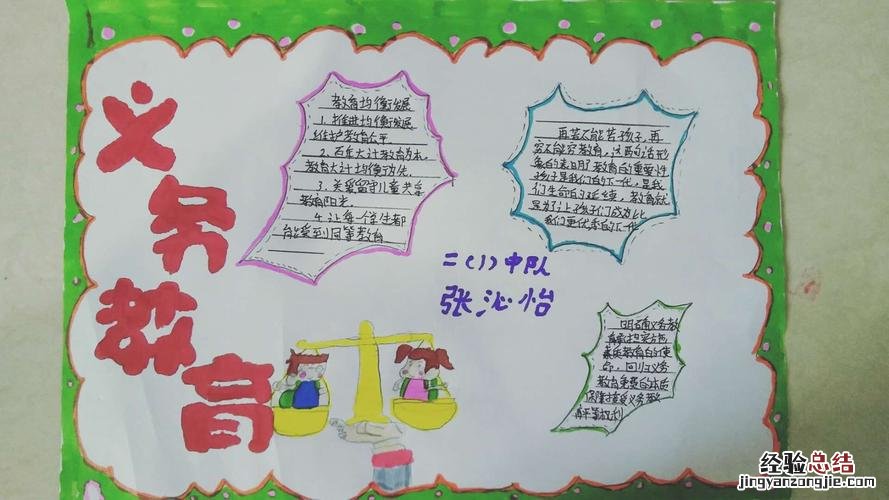 义务教育
教育均衡发展
1. 推进均衡发展
维护教育公平
2. 百年大计教育为本.
教育大计均衡为先.
3. 关爱留守儿童共享
教育阳光.
4. 让每一个学生都
能受到同等教育
再苦不能苦孩子,再
穷不能穷教育,这两句话形
象的表明了教育的重要性
孩子是我们的下一代,是我
们生命的延续,教育就
是为了让孩子们成为比
我们更优秀的下一代
二(1)中队
张沁怡
明确义务教
育承担实施
素质教育的使
命,回归义务
教育免费的本质
保障接受义务教
育平等权利
经验总结
jingyanzongjie.com